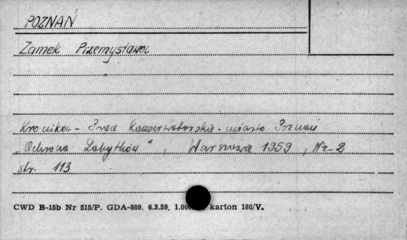 POZNAŃ
Zamek Przemysława
Kronika - Prace Konserwatorskie - miasto Poznań
„Ochrona Zabytków", Warszawa 1959, Nr-2
str. 113
CWD B-15b Nr 515/P. GDA-809. 6.3.59. 1.00 karton 180/V.